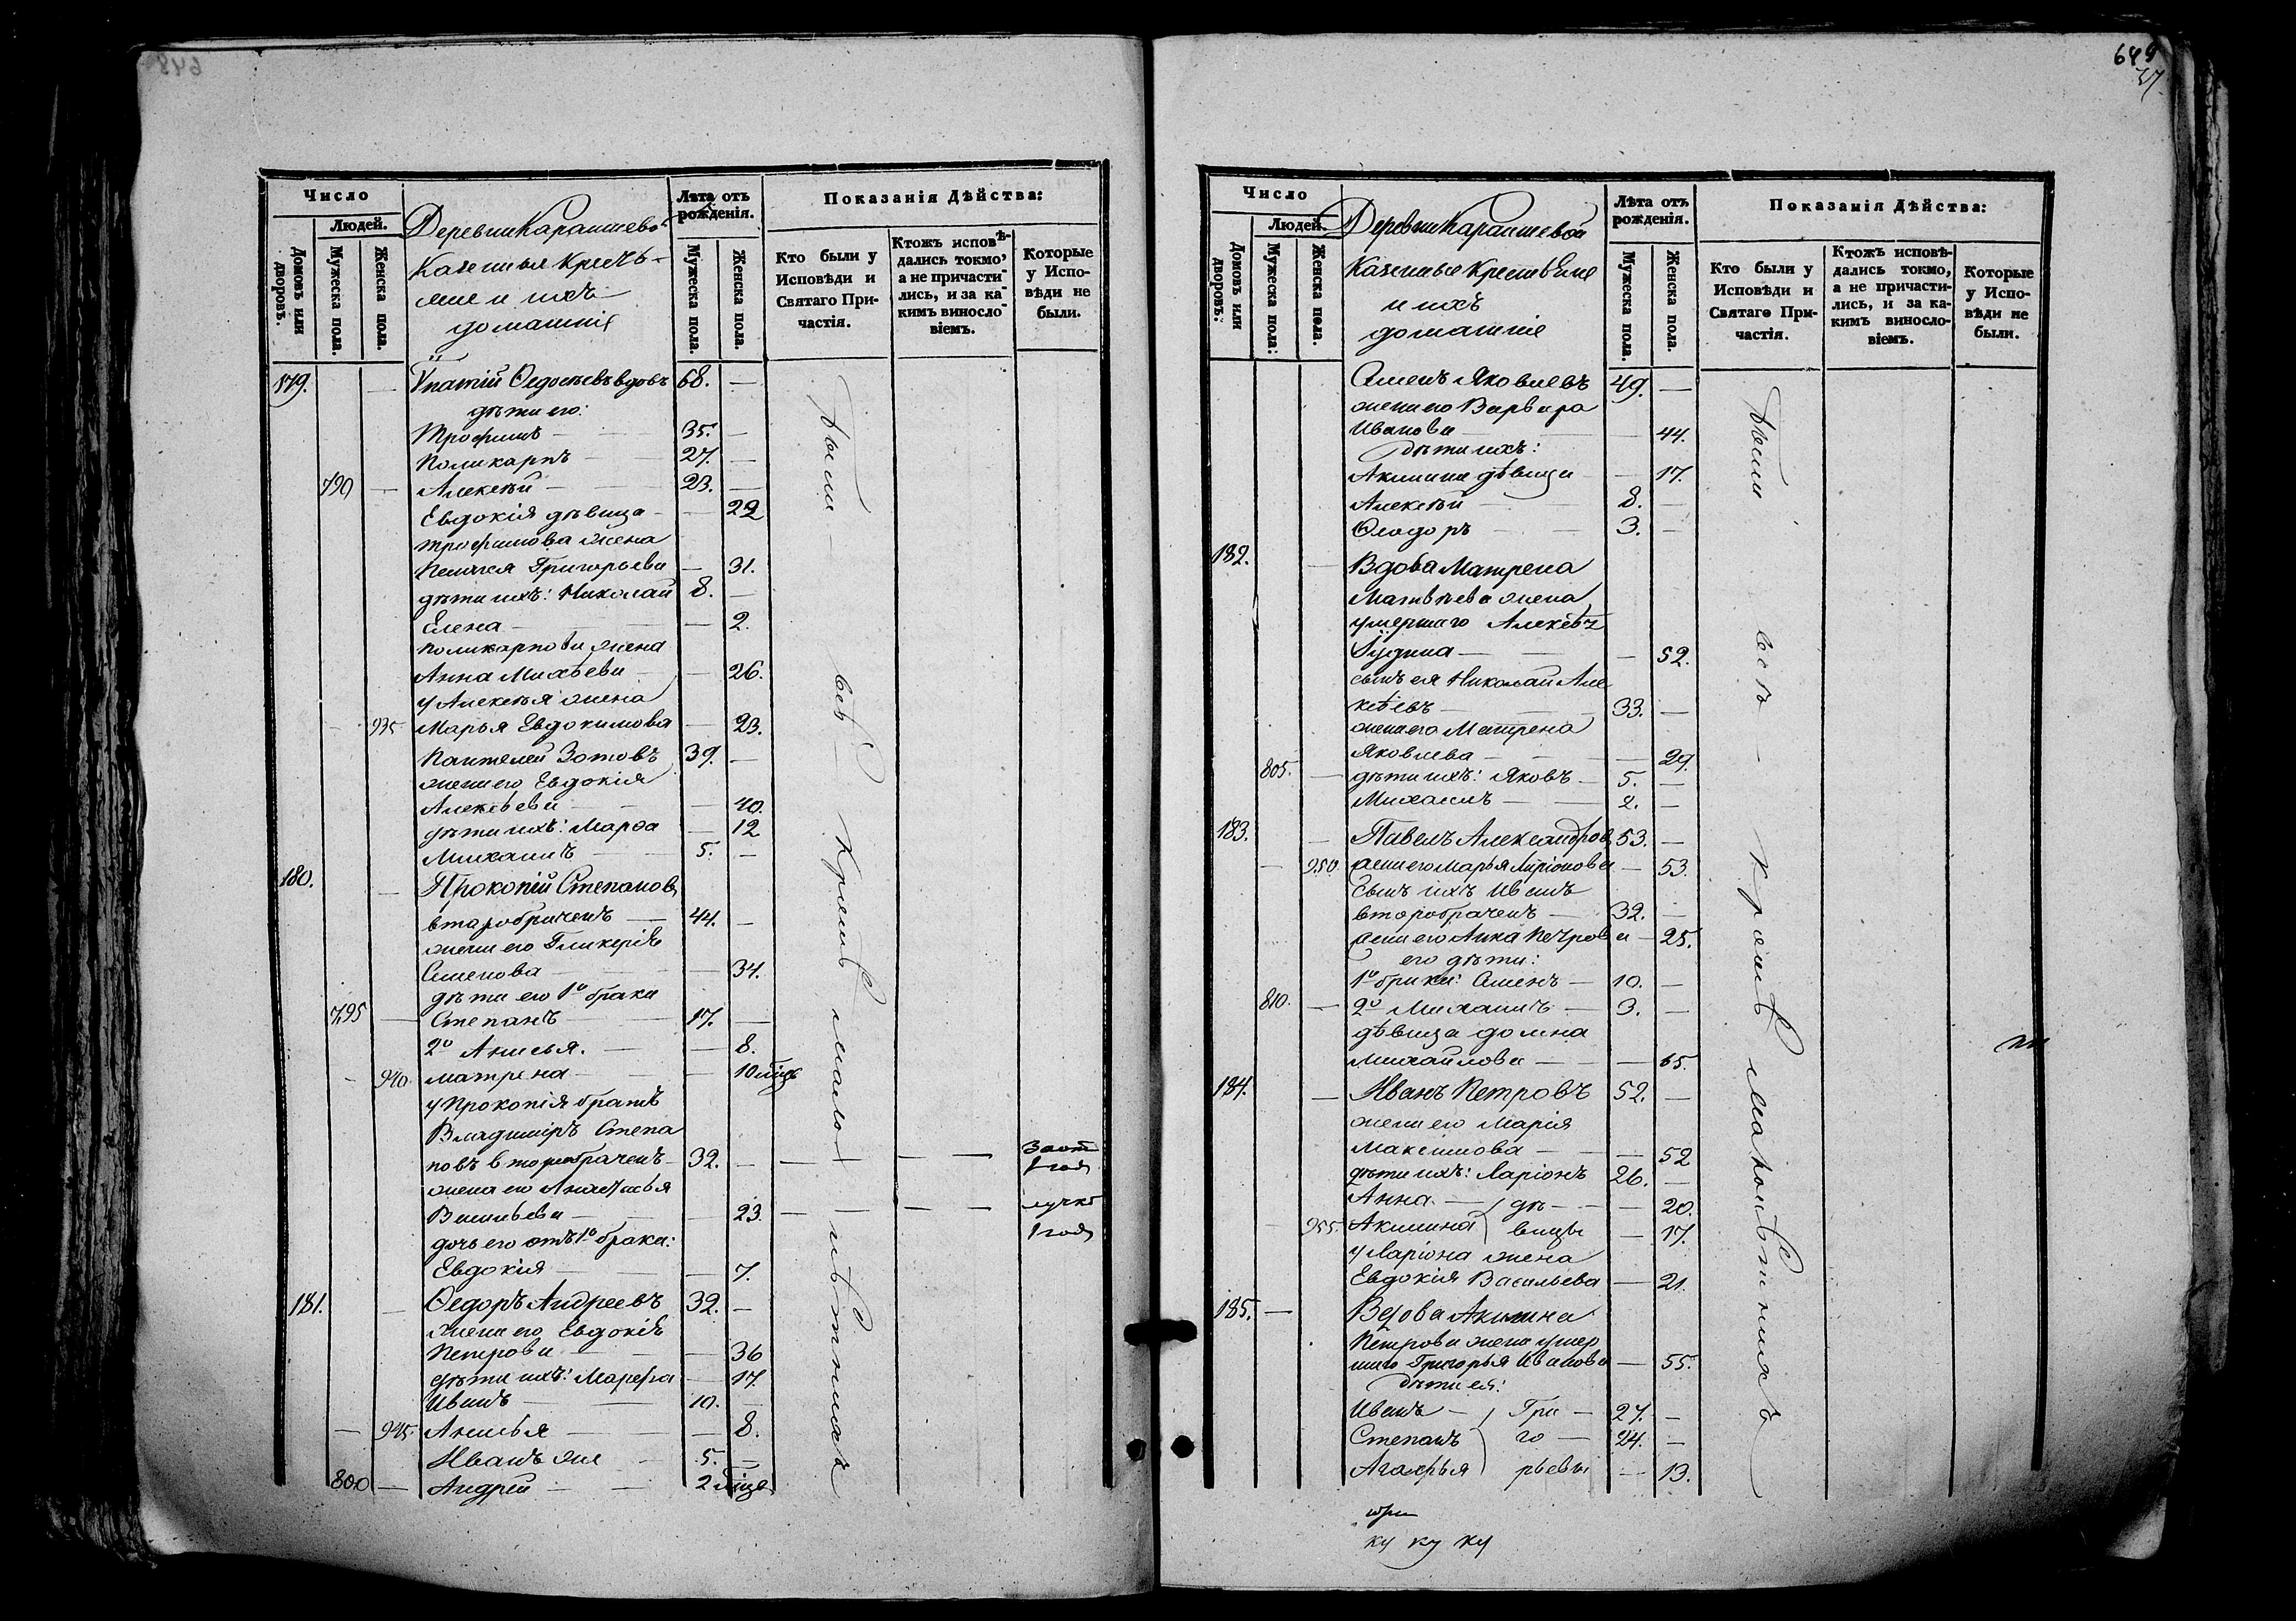 648
Число
Людей.
Домовъ или дворовъ.
Мужеска пола.
Женска пола.
Деревни Карамышево
Казенныя Кресть-
яне и ихъ
домашнія
Лѣта отъ рожденія.
Мужеска пола.
Женска пола.
Показанія Дѣйства:
Кто были у Исповѣди и Святаго При-частія.
Ктожъ исповѣ-дались токмо, а не причасти-лись, и за ка-кимъ винослo-віемъ.
Которые у Испо-вѣди не были.
179. — Ѵпатій Ѳедосѣевъ вдовъ 68. —
дѣти его:
Трофимъ — 35. —
Поликарпъ — 27. —
790 — Алексѣй — 23. —
Евдокія дѣвица — — 22
Трофимова жена
Пелагея Григорьева — 31.
дѣти ихъ: Николай 8. —
Елена — — 2.
Поликарпова жена
Анна Михѣева — 26.
у Алексѣя жена
— 935 Марья Евдокимова — 23.
Пантелей Зотовъ 39. —
жена его Евдокія
Алексѣева — — 40.
дѣти ихъ: Марѳа — 12
Михаилъ — 5. —
180. — Прокопій Степановъ
второбраченъ — 44. —
жена его Гликерія
Семенова — — 34.
дѣти его 1о брака
795 — Степанъ — 17. —
2о Анисья. — — 8.
— 940. Матрена — — 10 мѣсц
у Прокопія братъ
Владиміръ Степа
новъ второбраченъ — 32. — — — —
1 годъ
жена его Анастасья
Васильева — — 23. — — —
1 годъ
дочь его отъ 1о брака:
Евдокія — — 7.
181. — Ѳедоръ Андреевъ 32. —
жена его Евдокія
Петрова — — 36
дѣти ихъ: Марѳа — 17.
Иванъ — 10. —
— 945. Анисья — — 8.
Иванъ же — 5. —
800 — Андрей — 2 мѣсце
были — всѣ — кромѣ малолѣтнихъ
649
Число
Людей.
Домовъ или дворовъ.
Мужеска пола:
Женска пола.
Деревни Карамышевой
Казенные Крестьяне
и ихъ
домашніе
Лѣта отъ рожденія.
Мужеска пола.
Женска пола.
Показанія Дѣйства:
Кто были у Исповѣди и Святаго При-частія.
Ктожъ исповѣ-дались токмо, а не причасти-лись, и за ка-кимъ винослo-віемъ.
Которые у Испо-вѣди не были.
Семенъ Яковлевъ 49. —
жена его Варвара
Иванова — — 44.
дѣти ихъ:
Акилина дѣвица — 17.
Алексѣй — 8. —
Ѳеодоръ — 3. —
182. — Вдова Матрена
Матвѣева жена
умершаго Алексѣя
— 52.
сынъ ея Николай Але
ксѣевъ — 33. —
жена его Матрена
Яковлева — — 29.
805. — дѣти ихъ: Яковъ — 5. —
Михаилъ — 2. —
183. — Павелъ Александровъ 53. —
— 950. жена его Марья Ларіонова — 53.
Сынъ ихъ Иванъ
второбраченъ — 32. —
жена его Анна Петрова — 25.
его дѣти:
1о брака: Семенъ — 10. —
810. — 2о Михаилъ — 3. —
дѣвица Домна
Михайлова — — 65.
184. — Иванъ Петровъ 52. —
жена его Марія
Максимова — — 52
дѣти ихъ: Ларіонъ 26. —
Анна — дѣ — — 20.
955. Акилина вицы — 17.
у Ларіона жена
Евдокія Васильева — 21.
185. — Вдова Акилина
Петрова жена умер
шаго Григорья Иванова — 55.
дѣти ея:
Иванъ — Гри — 27. —
Степанъ го — 24. —
Агаѳья рьевы — 13.
были всѣ — кромѣ малолѣтнихъ
ку ку ку